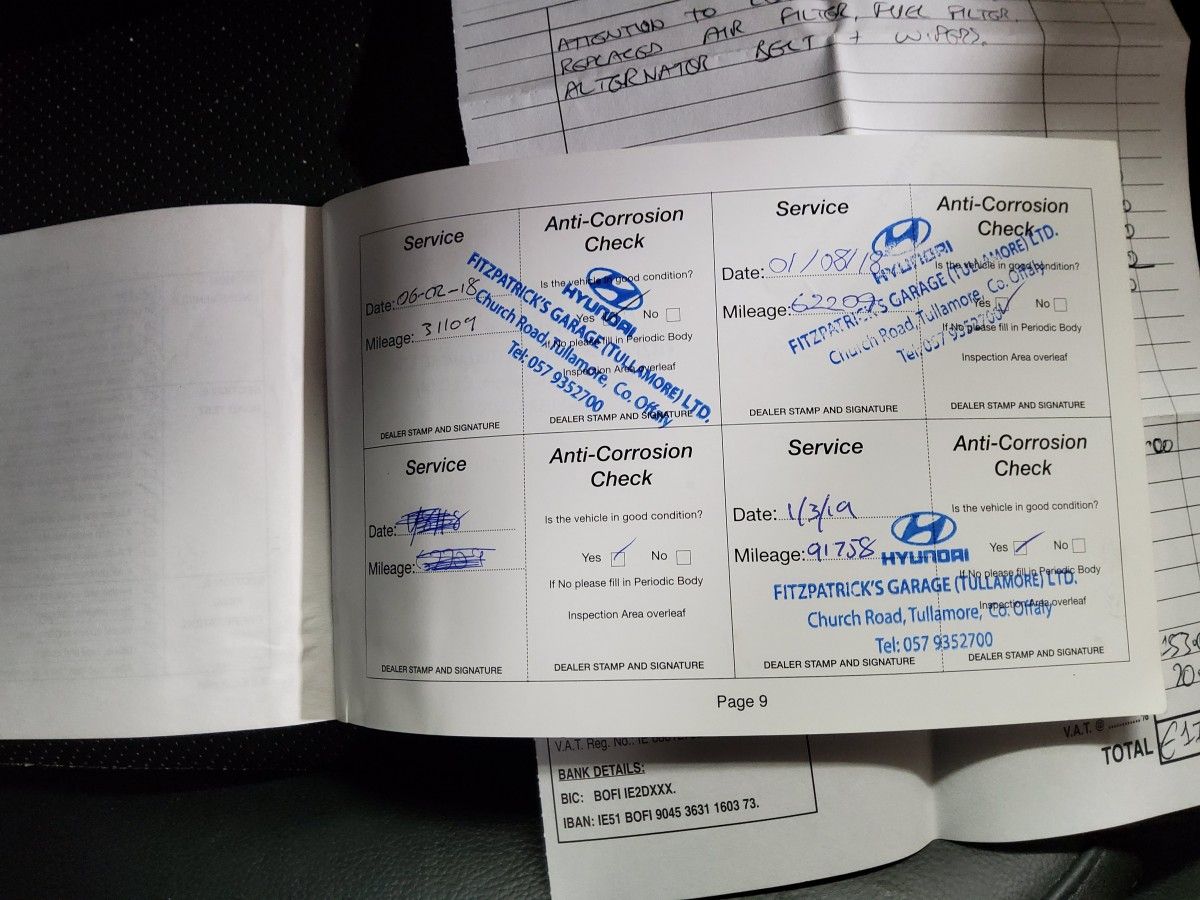 ATTENTION TO
REPLACED AIR FILTER, FUEL FILTER.
ALTERNATOR BELT + WIPERS.
Service
Date: 06-02-18
Mileage: 31109
DEALER STAMP AND SIGNATURE
Anti-Corrosion
Check
Is the vehicle in good condition?
Yes No
If No please fill in Periodic Body
Inspection Area overleaf
DEALER STAMP AND SIGNATURE
HYUNDAI
FITZPATRICK'S GARAGE (TULLAMORE) LTD.
Church Road, Tullamore, Co. Offaly
Tel: 057 9352700
Service
Date: 01/08/18
Mileage: 62209
DEALER STAMP AND SIGNATURE
Anti-Corrosion
Check
Is the vehicle in good condition?
Yes No
If No please fill in Periodic Body
Inspection Area overleaf
DEALER STAMP AND SIGNATURE
HYUNDAI
FITZPATRICK'S GARAGE (TULLAMORE) LTD.
Church Road, Tullamore, Co. Offaly
Tel: 057 9352700
Service
Date:
Mileage:
DEALER STAMP AND SIGNATURE
Anti-Corrosion
Check
Is the vehicle in good condition?
Yes No
If No please fill in Periodic Body
Inspection Area overleaf
DEALER STAMP AND SIGNATURE
Service
Date: 1/3/19
Mileage: 91758
DEALER STAMP AND SIGNATURE
Anti-Corrosion
Check
Is the vehicle in good condition?
Yes No
If No please fill in Periodic Body
Inspection Area overleaf
DEALER STAMP AND SIGNATURE
HYUNDAI
FITZPATRICK'S GARAGE (TULLAMORE) LTD.
Church Road, Tullamore, Co. Offaly
Tel: 057 9352700
Page 9
V.A.T. Reg. No.: IE
BANK DETAILS:
BIC: BOFI IE2DXXX.
IBAN: IE51 BOFI 9045 3631 1603 73.
V.A.T. @ ............%
TOTAL